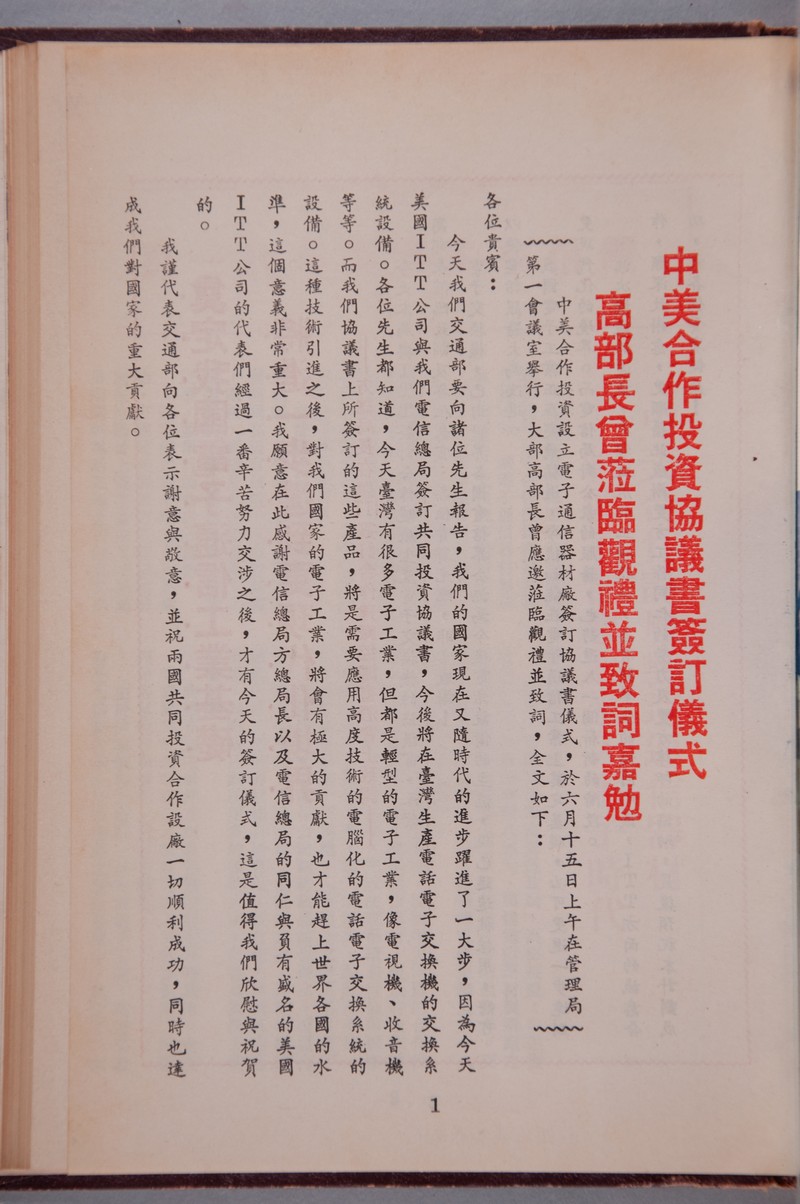 中美合作投資協議書簽訂儀式
高部長曾蒞臨觀禮並致詞嘉勉
中美合作投資設立電子通信器材廠簽訂協議書儀式，於六月十五日上午在管理局
第一會議室舉行，大部高部長曾應邀蒞臨觀禮並致詞，全文如下：
各位貴賓：
今天我們交通部要向諸位先生報告，我們的國家現在又隨時代的進步躍進了一大步，因為今天
美國ITT公司與我們電信總局簽訂共同投資協議書，今後將在臺灣生產電話電子交換機的交換系
統設備。各位先生都知道，今天臺灣有很多電子工業，但都是輕型的電子工業，像電視機、收音機
等等。而我們協議書上所簽訂的這些產品，將是需要應用高度技術的電腦化的電話電子交換系統的
設備。這種技術引進之後，對我們國家的電子工業，將會有極大的貢獻，也才能趕上世界各國的水
準，這個意義非常重大。我願意在此感謝電信總局方總局長以及電信總局的同仁與負有盛名的美國
ITT公司的代表們經過一番辛苦努力交涉之後，才有今天的簽訂儀式，這是值得我們欣慰與祝賀
的。
我謹代表交通部向各位表示謝意與敬意，並祝兩國共同投資合作設廠一切順利成功，同時也達
成我們對國家的重大貢獻。
1